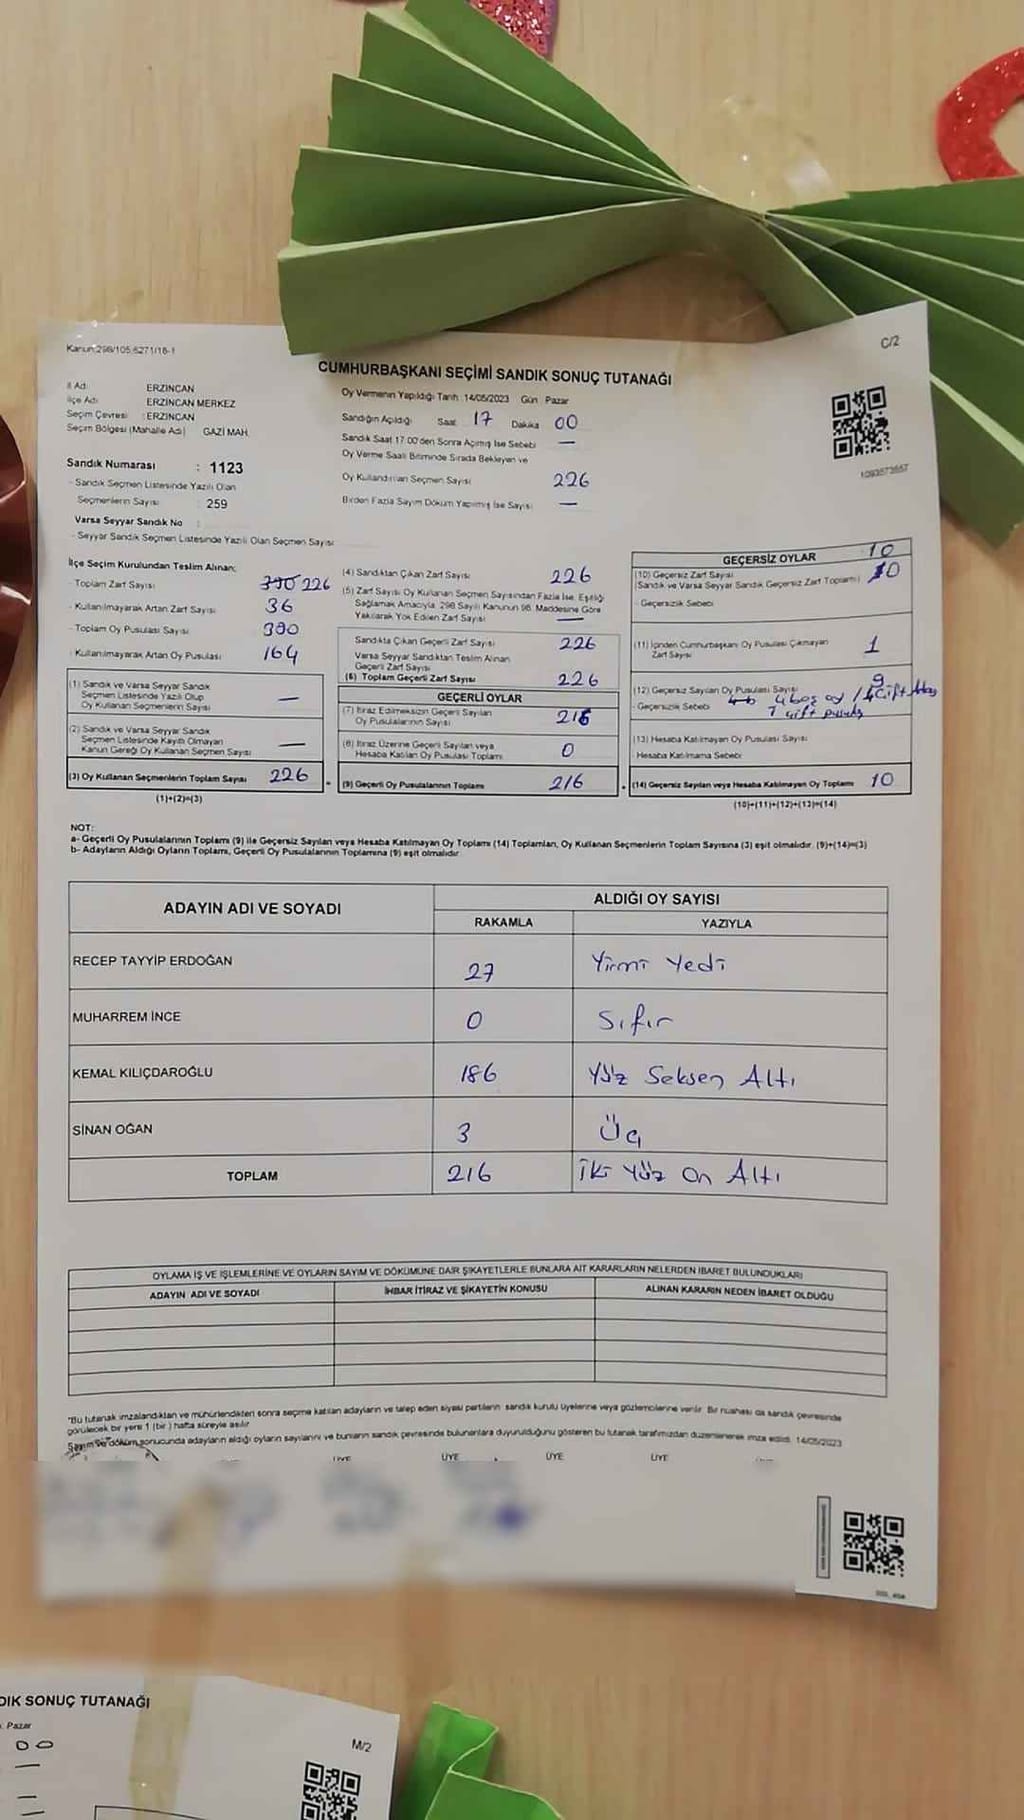 Kanun:298/105,6271/18-1
C/2
CUMHURBAŞKANI SEÇİMİ SANDIK SONUÇ TUTANAĞI
İl Adı ERZİNCAN
İlçe Adı ERZİNCAN MERKEZ
Seçim Çevresi : ERZİNCAN
Seçim Bölgesi (Mahalle Adı) GAZİ MAH.
Sandık Numarası : 1123
- Sandık Seçmen Listesinde Yazılı Olan
Seçmenlerin Sayısı 259
Varsa Seyyar Sandık No :
- Seyyar Sandık Seçmen Listesinde Yazılı Olan Seçmen Sayısı
Oy Vermenin Yapıldığı Tarih :14/05/2023 Gün Pazar
Sandığın Açıldığı Saat 17 Dakika 00
Sandık Saat 17.00'den Sonra Açılmış İse Sebebi —
Oy Verme Saati Bitiminde Sırada Bekleyen ve
Oy Kullandırılan Seçmen Sayısı 226
Birden Fazla Sayım Döküm Yapılmış İse Sayısı —
1093573557
İlçe Seçim Kurulundan Teslim Alınan;
- Toplam Zarf Sayısı 390 226
- Kullanılmayarak Artan Zarf Sayısı 36
- Toplam Oy Pusulası Sayısı 390
- Kullanılmayarak Artan Oy Pusulası 164
(1) Sandık ve Varsa Seyyar Sandık
Seçmen Listesinde Yazılı Olup
Oy Kullanan Seçmenlerin Sayısı —
(2) Sandık ve Varsa Seyyar Sandık
Seçmen Listesinde Kayıtlı Olmayan
Kanun Gereği Oy Kullanan Seçmen Sayısı —
(3) Oy Kullanan Seçmenlerin Toplam Sayısı 226
(1)+(2)=(3)
(4) Sandıktan Çıkan Zarf Sayısı 226
(5) Zarf Sayısı Oy Kullanan Seçmen Sayısından Fazla İse, Eşitliği
Sağlamak Amacıyla, 298 Sayılı Kanunun 98. Maddesine Göre
Yakılarak Yok Edilen Zarf Sayısı —
Sandıkta Çıkan Geçerli Zarf Sayısı 226
Varsa Seyyar Sandıktan Teslim Alınan
Geçerli Zarf Sayısı
(6) Toplam Geçerli Zarf Sayısı 226
GEÇERLİ OYLAR
(7) İtiraz Edilmeksizin Geçerli Sayılan
Oy Pusulalarının Sayısı 216
(8) İtiraz Üzerine Geçerli Sayılan veya
Hesaba Katılan Oy Pusulası Toplamı 0
(9) Geçerli Oy Pusulalarının Toplamı 216
GEÇERSİZ OYLAR 10
(10) Geçersiz Zarf Sayısı
(Sandık ve Varsa Seyyar Sandık Geçersiz Zarf Toplamı) 10
- Geçersizlik Sebebi
(11) İçinden Cumhurbaşkanı Oy Pusulası Çıkmayan
Zarf Sayısı 1
(12) Geçersiz Sayılan Oy Pusulası Sayısı 9
- Geçersizlik Sebebi 4 boş oy / 4 Çift
1 çift pusula
(13) Hesaba Katılmayan Oy Pusulası Sayısı
Hesaba Katılmama Sebebi
(14) Geçersiz Sayılan veya Hesaba Katılmayan Oy Toplamı 10
(10)+(11)+(12)+(13)=(14)
NOT:
a- Geçerli Oy Pusulalarının Toplamı (9) ile Geçersiz Sayılan veya Hesaba Katılmayan Oy Toplamı (14) Toplamları, Oy Kullanan Seçmenlerin Toplam Sayısına (3) eşit olmalıdır. (9)+(14)=(3)
b- Adayların Aldığı Oyların Toplamı, Geçerli Oy Pusulalarının Toplamına (9) eşit olmalıdır.
ADAYIN ADI VE SOYADI ALDIĞI OY SAYISI
RAKAMLA YAZIYLA
RECEP TAYYİP ERDOĞAN 27 Yirmi Yedi
MUHARREM İNCE 0 Sıfır
KEMAL KILIÇDAROĞLU 186 Yüz Seksen Altı
SİNAN OĞAN 3 Üç
TOPLAM 216 İki Yüz On Altı
OYLAMA İŞ VE İŞLEMLERİNE VE OYLARIN SAYIM VE DÖKÜMÜNE DAİR ŞİKAYETLERLE BUNLARA AİT KARARLARIN NELERDEN İBARET BULUNDUKLARI
ADAYIN ADI VE SOYADI İHBAR İTİRAZ VE ŞİKAYETİN KONUSU ALINAN KARARIN NEDEN İBARET OLDUĞU
*Bu tutanak imzalandıktan ve mühürlendikten sonra seçime katılan adayların ve talep eden siyasi partilerin sandık kurulu üyelerine veya gözlemcilerine verilir. Bir nüshası da sandık çevresinde
görülecek bir yere 1 (bir) hafta süreyle asılır.
Sayım ve döküm sonucunda adayların aldığı oyların sayılarını ve bunların sandık çevresinde bulunanlara duyurulduğunu gösteren bu tutanak tarafımızdan düzenlenerek imza edildi. 14/05/2023
ÜYE ÜYE ÜYE ÜYE
DIK SONUÇ TUTANAĞI
Pazar
00
M/2